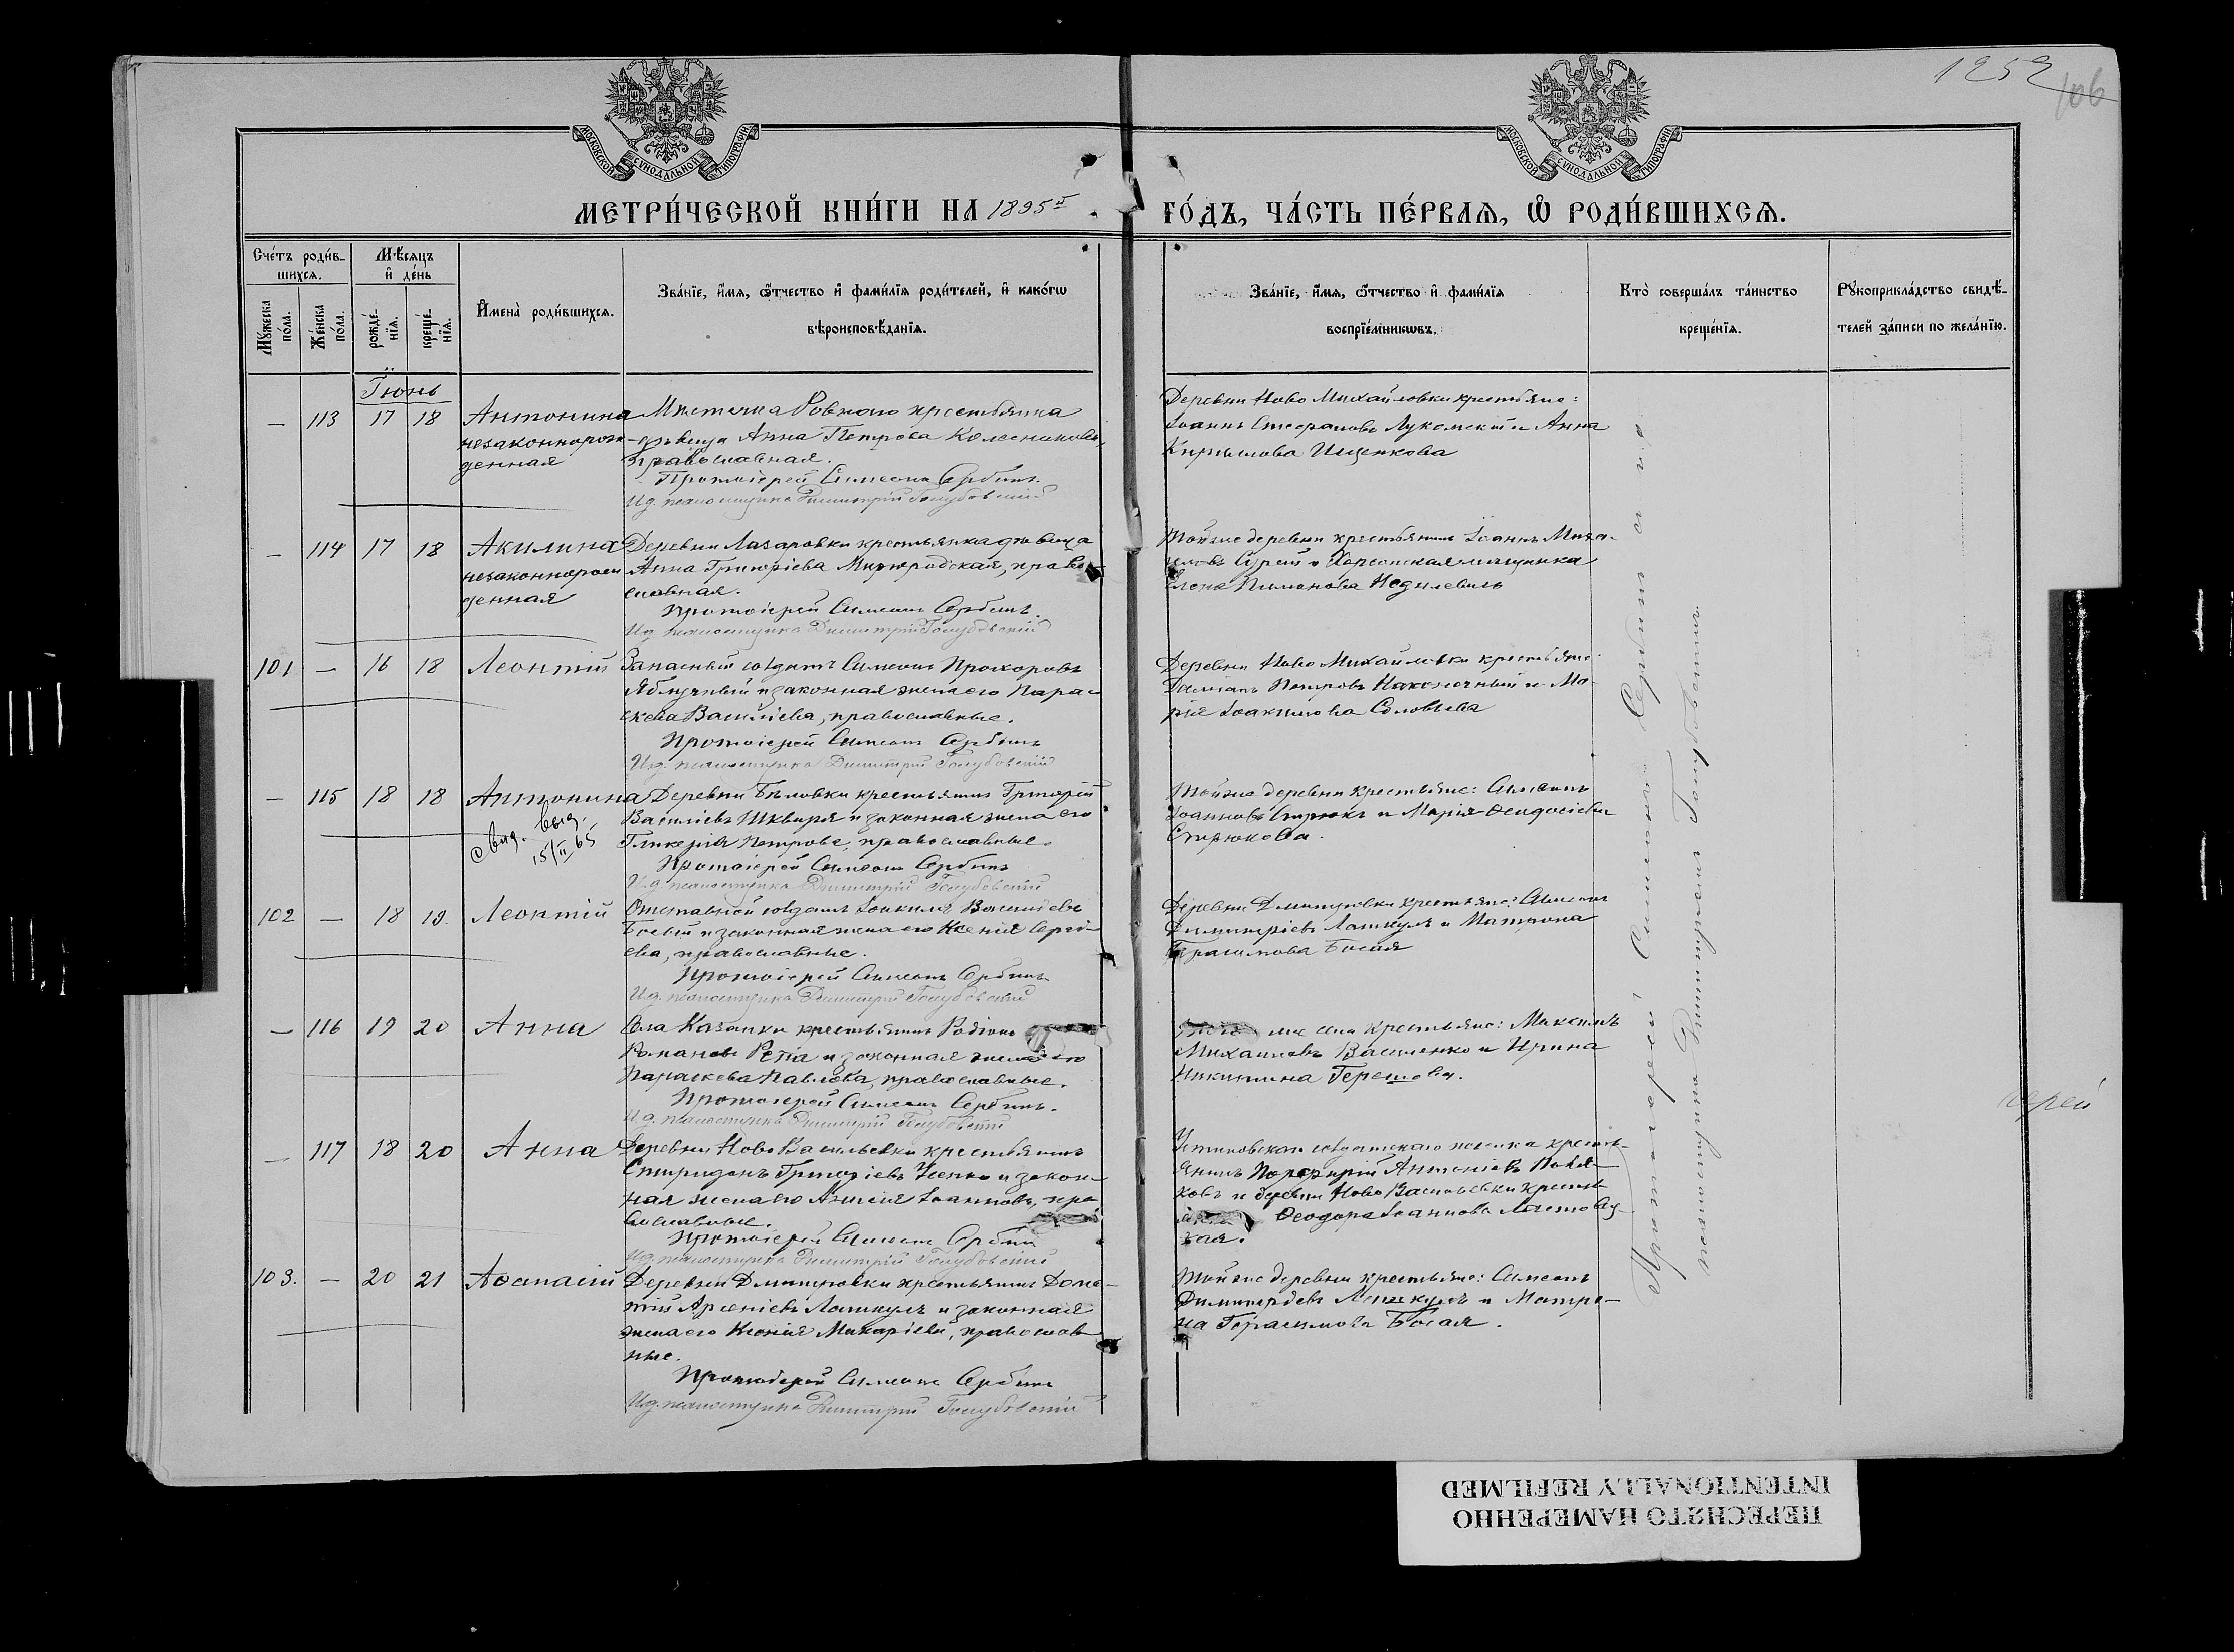 1252
106
МОСКОВСКОЙ СѴНОДАЛЬНОЙ ТИПОГРАФІИ
МОСКОВСКОЙ СѴНОДАЛЬНОЙ ТИПОГРАФІИ
МЕТРИ́ЧЕСКОЙ КНИ́ГИ НА 1895й
ГО́ДЪ, ЧА́СТЬ ПЕ́РВАЯ, Ѡ РОДИ́ВШИХСЯ.
Сче́тъ роди́вшихся.
Мꙋжеска по́ла.
Же́нска по́ла.
Мѣ́сяцъ и де́нь
рожде́нїя.
креще́нїя.
Имена̀ роди́вшихся.
Зва́нїе, и́мя, ѻ҆́тчество и фами́лїя роди́телей, и како́гѡ
вѣроисповѣ́данїя.
Зва́нїе, и́мя, ѻ҆́тчество и фами́лїя
воспрїе́мникѡвъ.
Кто̀ соверша́лъ та́инство
креще́нїя.
Рꙋкоприкла́дство свидѣ́-
телей за́писи по жела́нїю.
Іюнь
— 113 17 18 Антонина
незаконнорож-
денная
Мѣстечка Ровнаго крестьянка
дѣвица Анна Петрова Колесникова,
православная.
Протоіерей Симеонъ Сербинъ.
И.д. псаломщика Димитрій Голубовскій
Деревни Ново Михайловки крестьяне:
Іоаннъ Стефановъ Лукомскій и Анна
Кириллова Ищенкова
— 114 17 18 Акилина
незаконнорож
денная
Деревни Лазаровки крестьянка дѣвица
Анна Григоріева Миргородская, право-
славная.
Протоіерей Симеонъ Сербинъ.
И.д. псаломщика Димитрій Голубовскій
Той же деревни крестьянинъ Іоаннъ Миха-
иловъ и Херсонская мѣщанка
Елена
101 — 16 18 Леонтій
Запасный солдатъ Симеонъ Прохоровъ
Яблучный и законная жена его Пара-
скева Василіева, православные.
Протоіерей Симеонъ Сербинъ
И.д. псаломщика Димитрій Голубовскій
Деревни Ново Михайловки крестьяне:
Даміанъ Петровъ Наконечный и Ма-
рія Іоакимова Соловьева
— 115 18 18 Антонина
Свид. выд.
15/II 65
Деревни Бѣловки крестьянинъ Григорій
Василіевъ Шкваря и законная жена его
Гликерія Петрова, православные.
Протоіерей Симеонъ Сербинъ
И.д. псаломщика Димитрій Голубовскій
Той же деревни крестьяне: Симеонъ
Іоанновъ Стрюкъ и Марія Ѳеодосіева
Стрюкова.
102 — 18 19. Леонтій
Отставной солдатъ Іоакимъ Василіевъ
Босый и законная жена его Ксенія Сергі-
ева, православные.
Протоіерей Симеонъ Сербинъ
И.д. псаломщика Димитрій Голубовскій
Деревни Дмитровки крестьяне: Симеонъ
Димитріевъ Лашкулъ и Матрона
Герасимова Босая
— 116 19 20 Анна
Села Казанки крестьянинъ Родіонъ
Романовъ Репа и законная жена его
Параскева Павлова, православные.
Протоіерей Симеонъ Сербинъ.
И.д. псаломщика Димитрій Голубовскій
же села крестьяне: Максимъ
Михаиловъ Василенко и Ирина
Никитина
— 117 18 20 Анна
Деревни Ново Васильевки крестьянинъ
Спиридонъ Григоріевъ Усенко и закон-
ная жена его Іоаннова, пра-
вославные.
Протоіерей Симеонъ Сербинъ
И.д. псаломщика Димитрій Голубовскій
Устиновскаго солдатскаго поселка кресть-
янинъ Порфирій Антоніевъ Поля-
ковъ и деревни Ново Васильевки кресть-
Ѳеодора Іоаннова
103. — 20 21 Аѳанасій
Деревни Дмитровки крестьянинъ Доме-
тій Арсеніевъ Лашкулъ и законная
жена его Ксенія Макаріева, православ-
ные.
Протоіерей Симеонъ Сербинъ
И.д. псаломщика Димитрій Голубовскій
Той же деревни крестьяне: Симеонъ
Димитріевъ Лашкулъ и Матро-
на Герасимова Босая.
Протоіерей Симеонъ Сербинъ
псаломщикомъ Димитріемъ Голубовскимъ.
іерей
ПЕРЕСНЯТО НАМЕРЕННО
INTENTIONALLY REFILMED